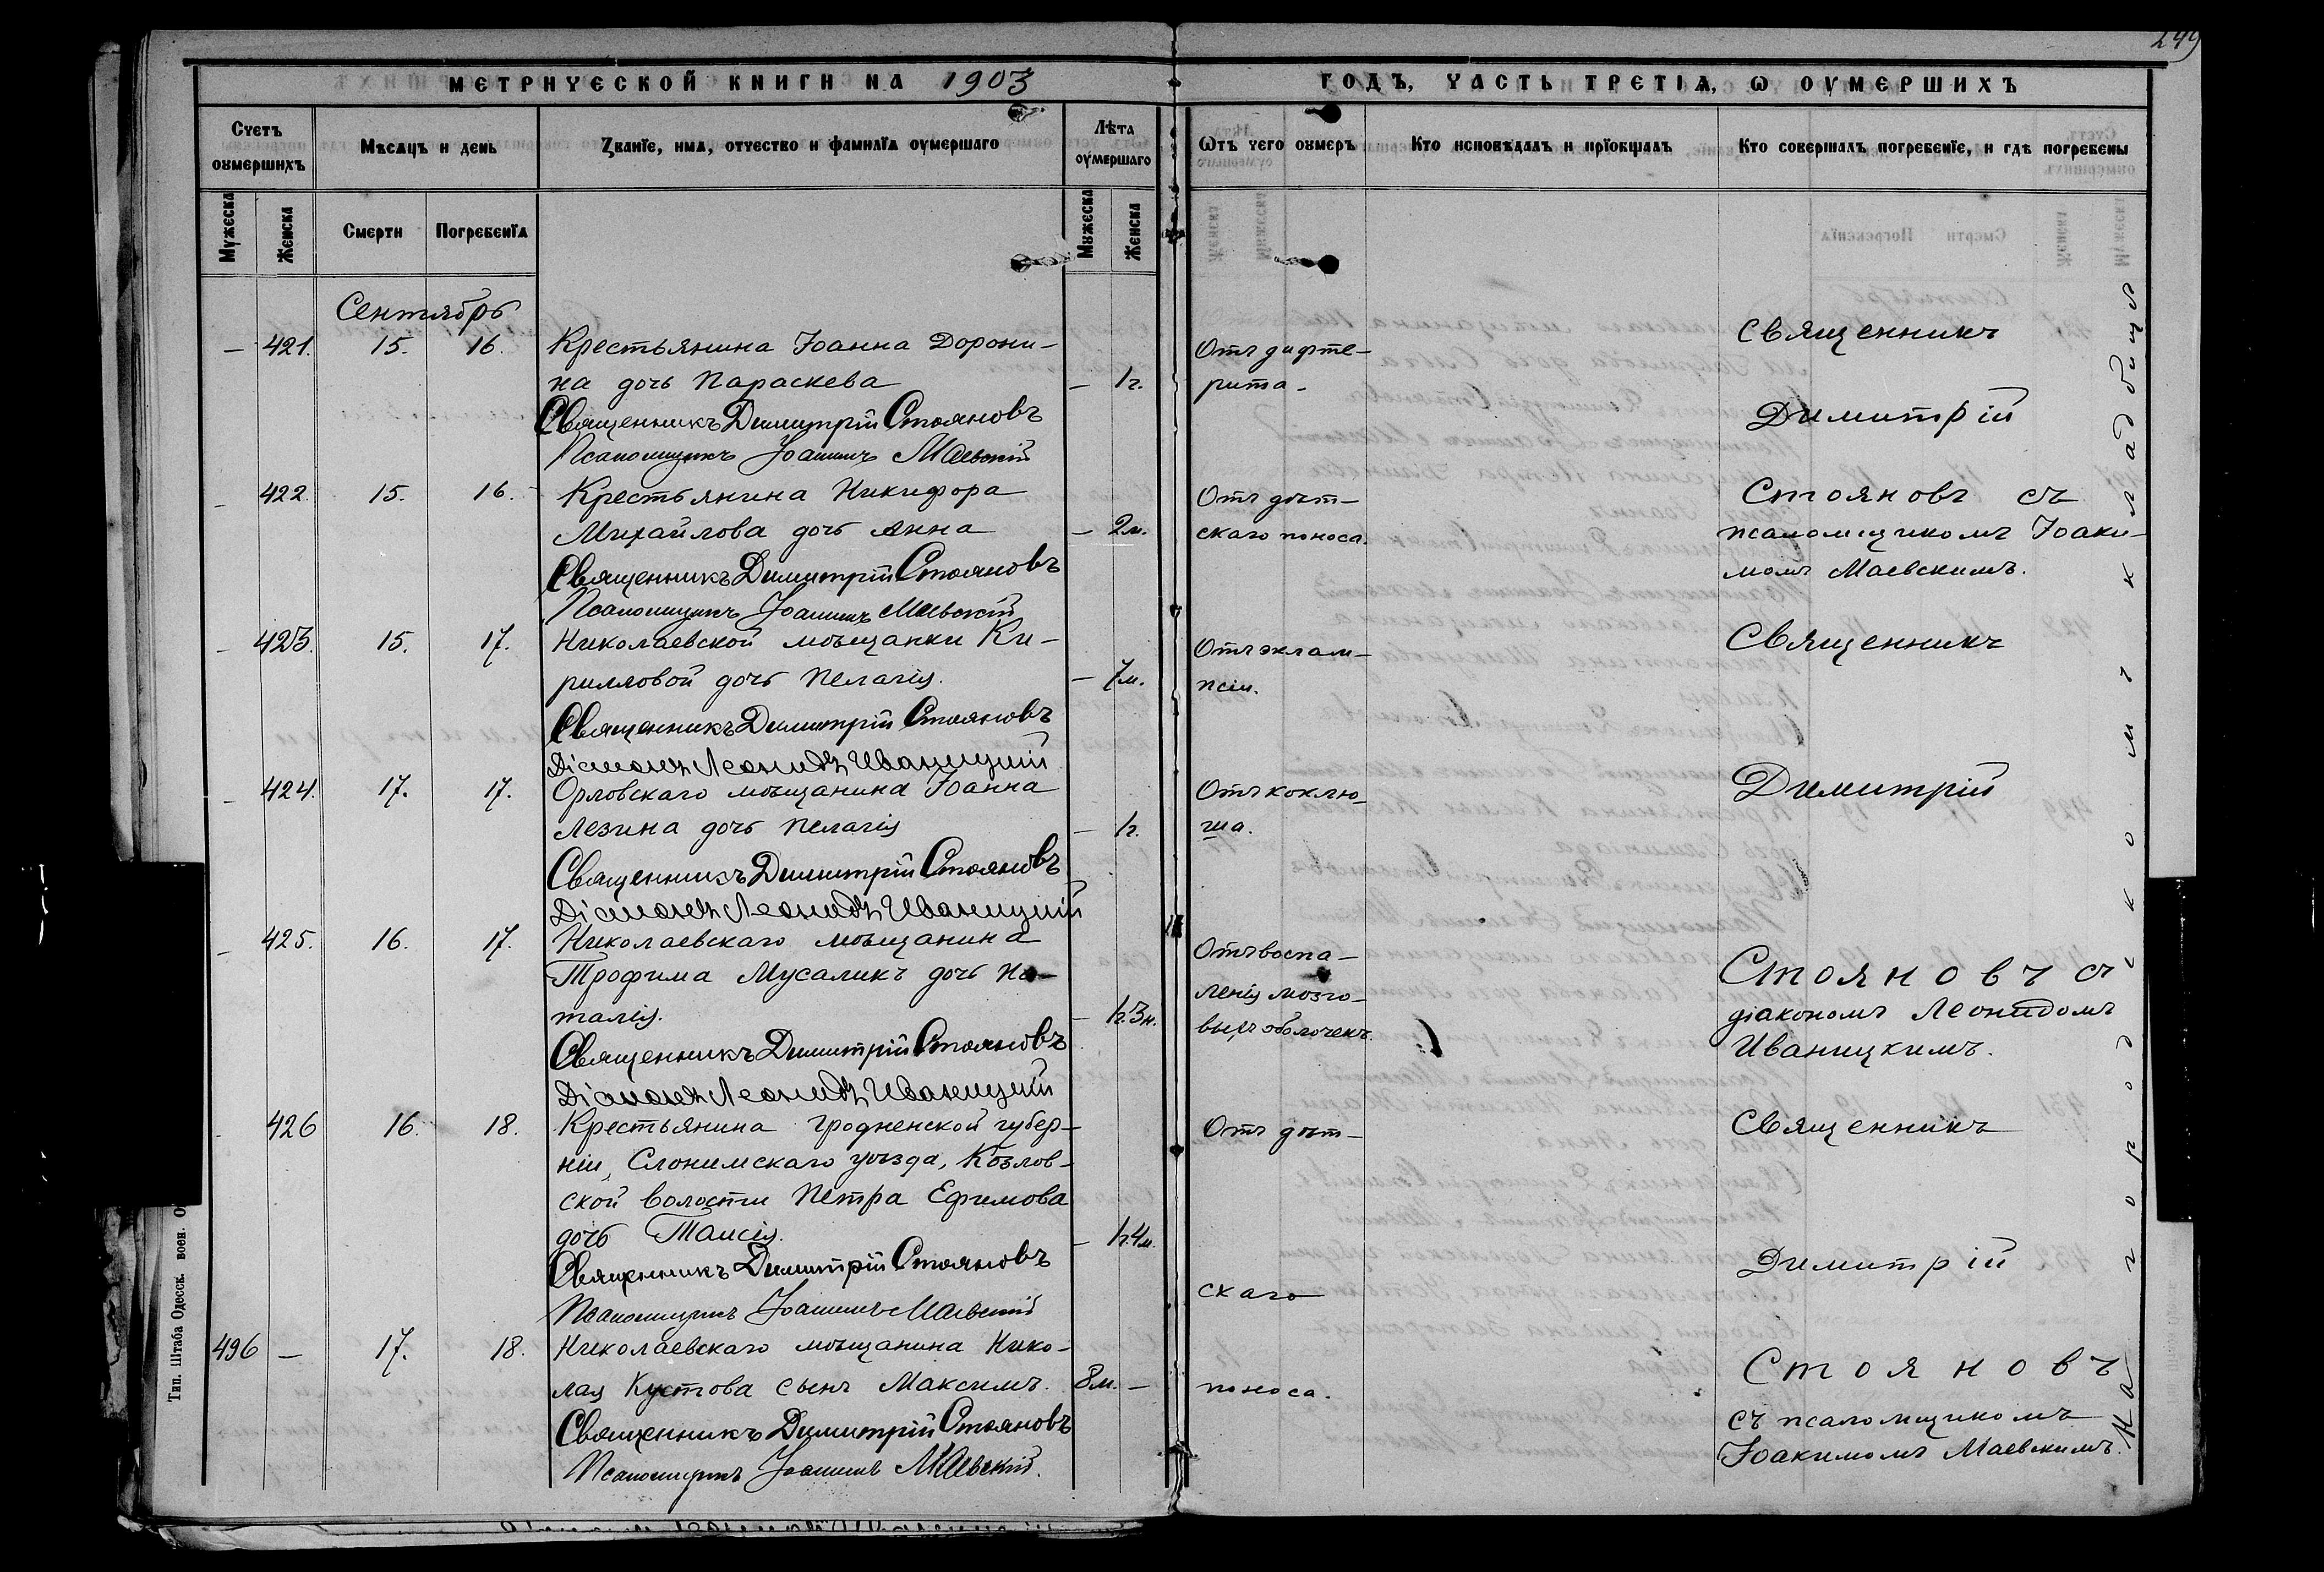 249
МЕТРИЧЕСКОЙ КНИГИ НА 1903
ГОДЪ, ЧАСТЬ ТРЕТІЯ, Ѡ ОУМЕРШИХЪ
Счетъ оумершихъ
Мѣсяцъ и день
Званїе, имя, отчество и фамилїя оумершаго
Лѣта оумершаго
Ѿтъ чего оумеръ
Кто исповѣдалъ и прїобщалъ
Кто совершалъ погребенїе, и гдѣ погребены
Мужеска
Женска
Смерти
Погребенїя
Мужеска
Женска
Сентябрь
— 421. 15. 16. Крестьянина Іоанна Дорони-
на дочь Параскева — 1г.
Отъ дифте-
рита.
Священникъ Димитрій Стояновъ
Псаломщикъ Іоакимъ Маевскій
- 422. 15. 16. Крестьянина Никифора
Михайлова дочь Анна — 2м.
Отъ дѣт-
скаго поноса.
Священникъ Димитрій Стояновъ
Псаломщикъ Іоакимъ Маевскій
Священникъ
Димитрій
Стояновъ съ
псаломщикомъ Іоаки-
момъ Маевскимъ.
- 423. 15. 17. Николаевской мѣщанки Ки-
рилловой дочь Пелагія. — 7м.
Отъ эклам-
псіи.
Священникъ Димитрій Стояновъ
Діаконъ Леонидъ Иваницкій
- 424. 17. 17. Орловскаго мѣщанина Іоанна
Лезина дочь Пелагія — 1г.
Отъ коклю-
ша.
Священникъ Димитрій Стояновъ
Діаконъ Леонидъ Иваницкій
- 425. 16. 17. Николаевскаго мѣщанина
Трофима Мусаликъ дочь На-
талія. — 1г.3м.
Отъ воспа-
ленія мозго-
выхъ оболочекъ.
Священникъ Димитрій Стояновъ
Діаконъ Леонидъ Иваницкій
Священникъ
Димитрій
Стояновъ съ
діакономъ Леонидомъ
Иваницкимъ.
- 426 16. 18. Крестьянина Гродненской губер-
ніи, Слонимскаго уѣзда, Козлов-
ской волости Петра Ефимова
дочь Таисія. — 1г.4м.
Отъ дѣт-
Священникъ Димитрій Стояновъ
Псаломщикъ Іоакимъ Маевскій
скаго
496 — 17. 18. Николаевскаго мѣщанина Нико-
лая Кустова сынъ Максимъ. 8м. —
поноса.
Священникъ Димитрій Стояновъ
Псаломщикъ Іоакимъ Маевскій.
Священникъ
Димитрій
Стояновъ
съ псаломщикомъ
Іоакимомъ Маевскимъ.
На городскомъ кладбищѣ
Тип. Штаба Одесск. воен.